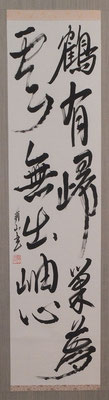 鶴有歸巣夢
雲無出岫心